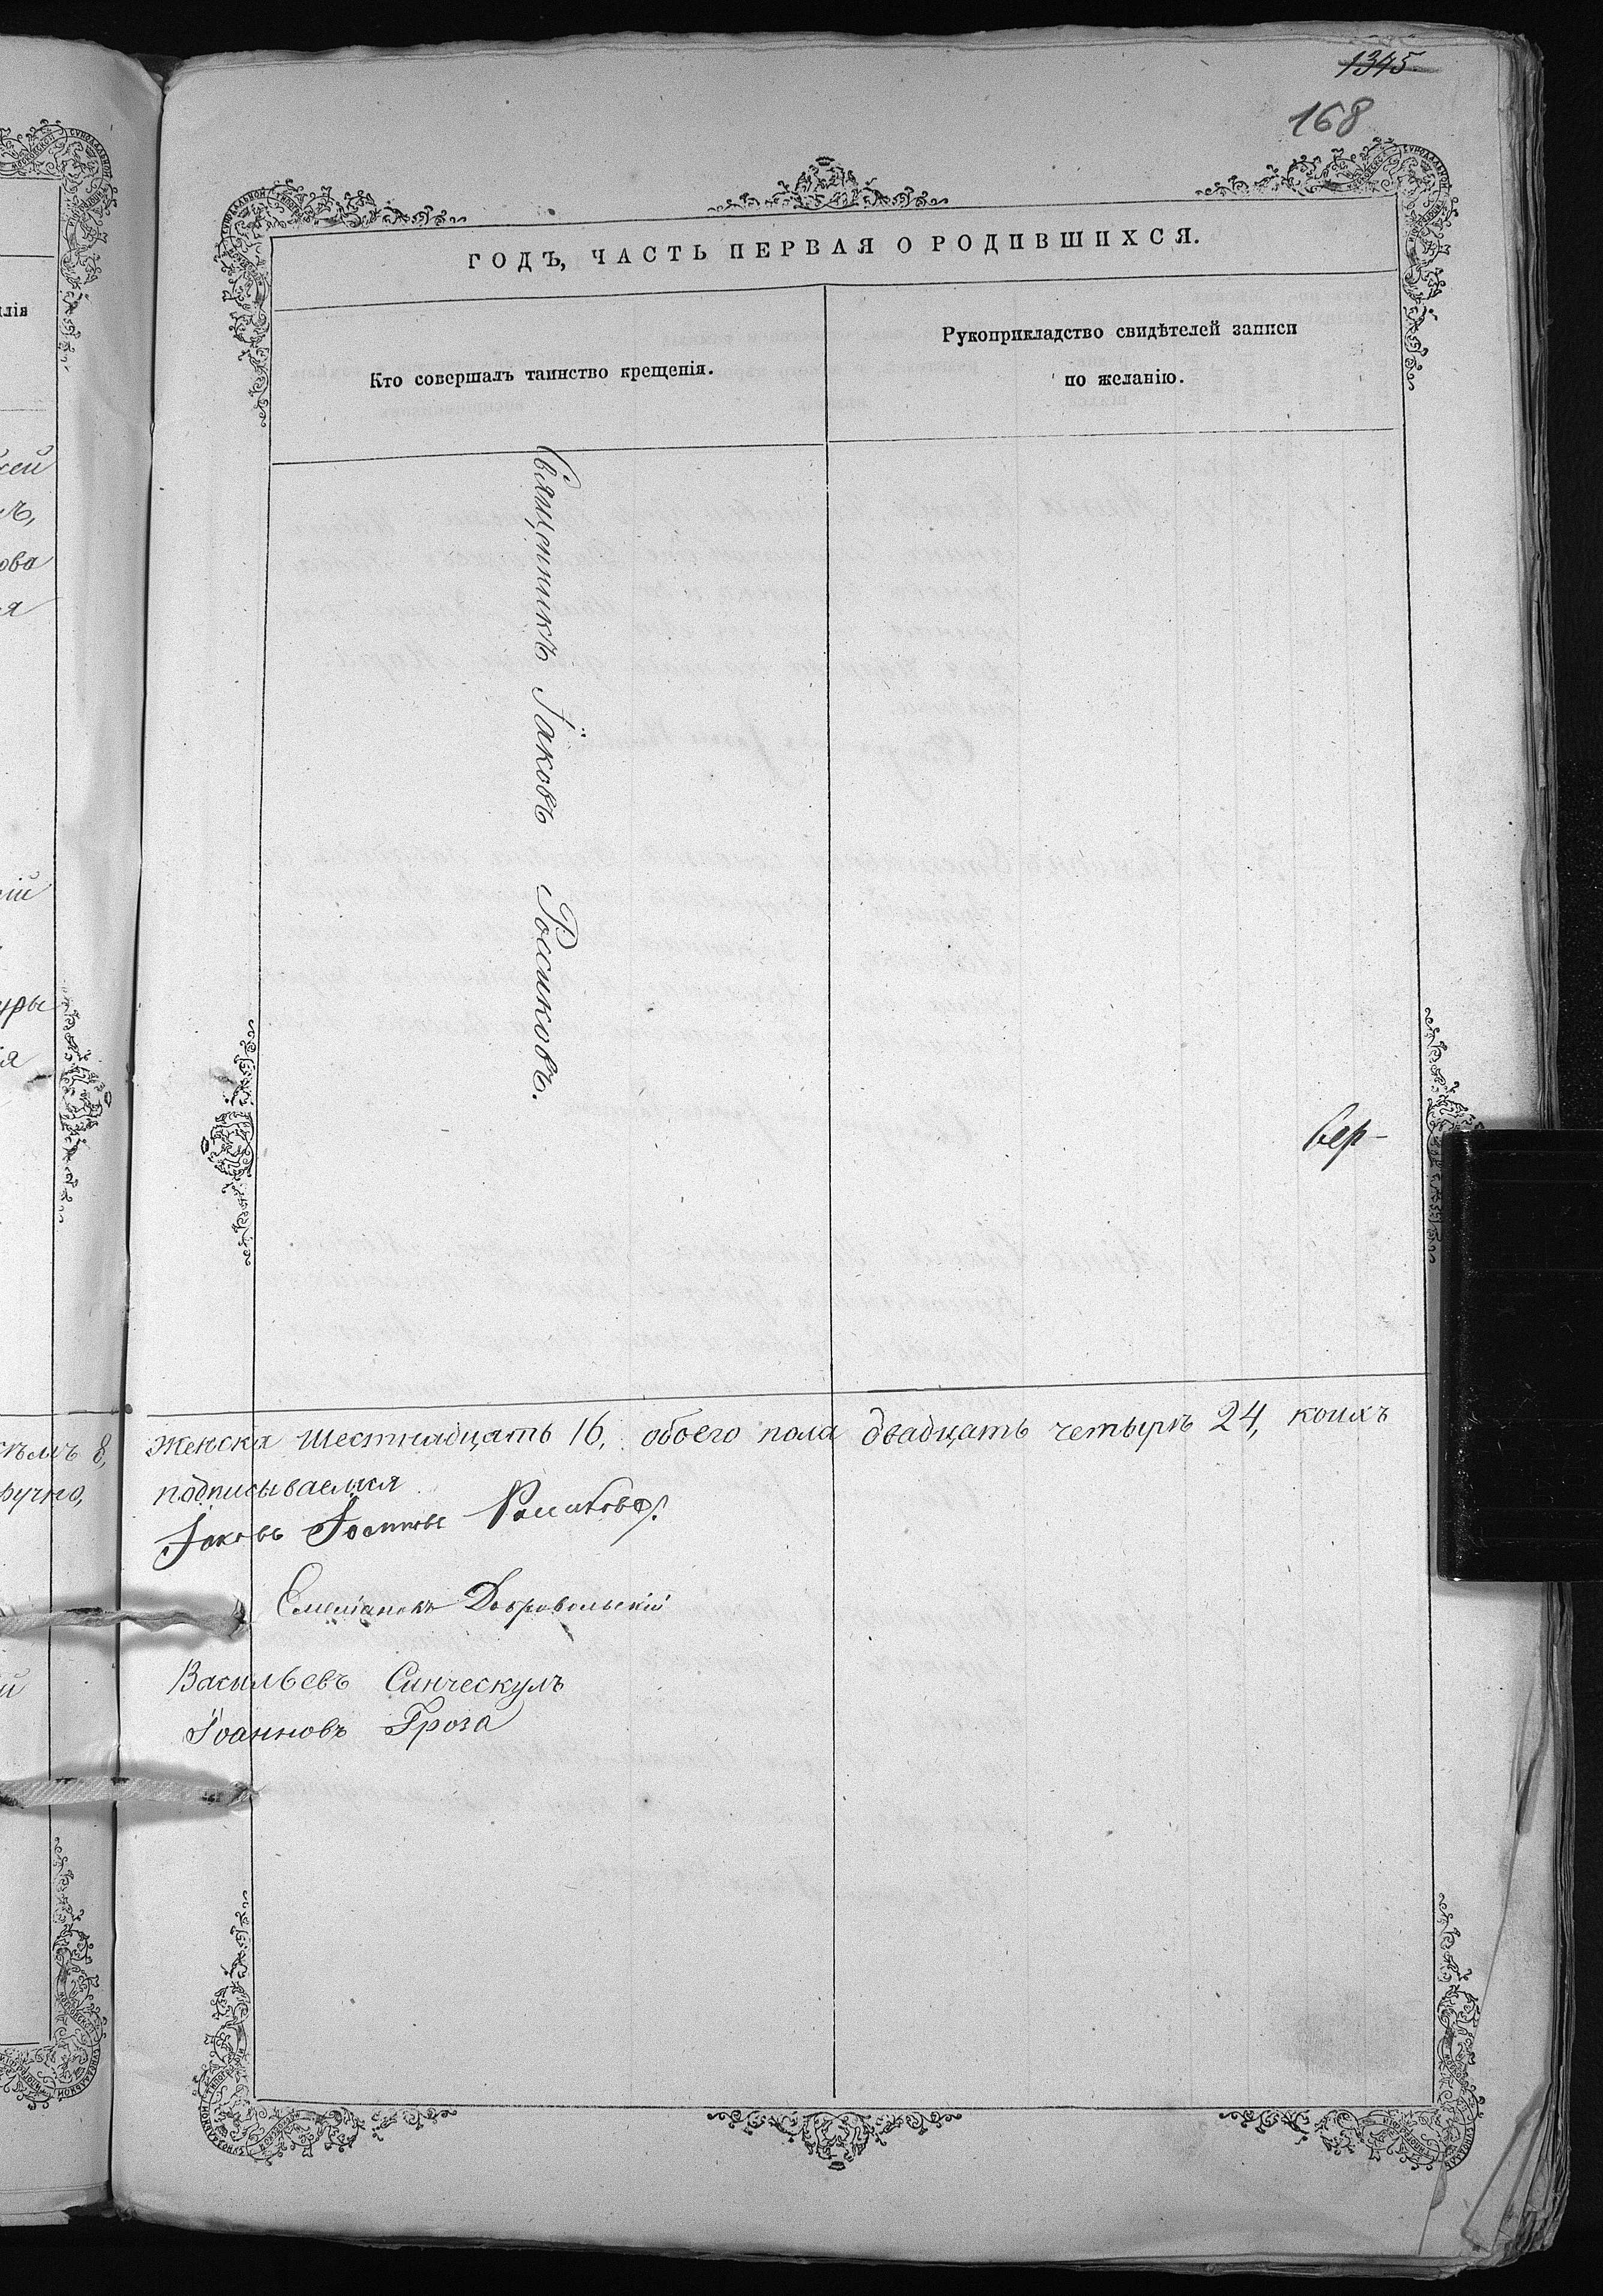 1345
168
ГОДЪ, ЧАСТЬ ПЕРВАЯ О РОДИВШИХСЯ.
Кто совершалъ таинство крещенія.
Рукоприкладство свидѣтелей записи
по желанію.
Священникъ Іаковъ Росиковъ.
вер-
женска шестнадцать 16, обоего пола двадцать четырѣ 24, коихъ
подписываемся
Іаковъ Росиковъ.
Емеліановъ Добровольскій
Васильевъ Синческулъ
Іоанновъ Гроза